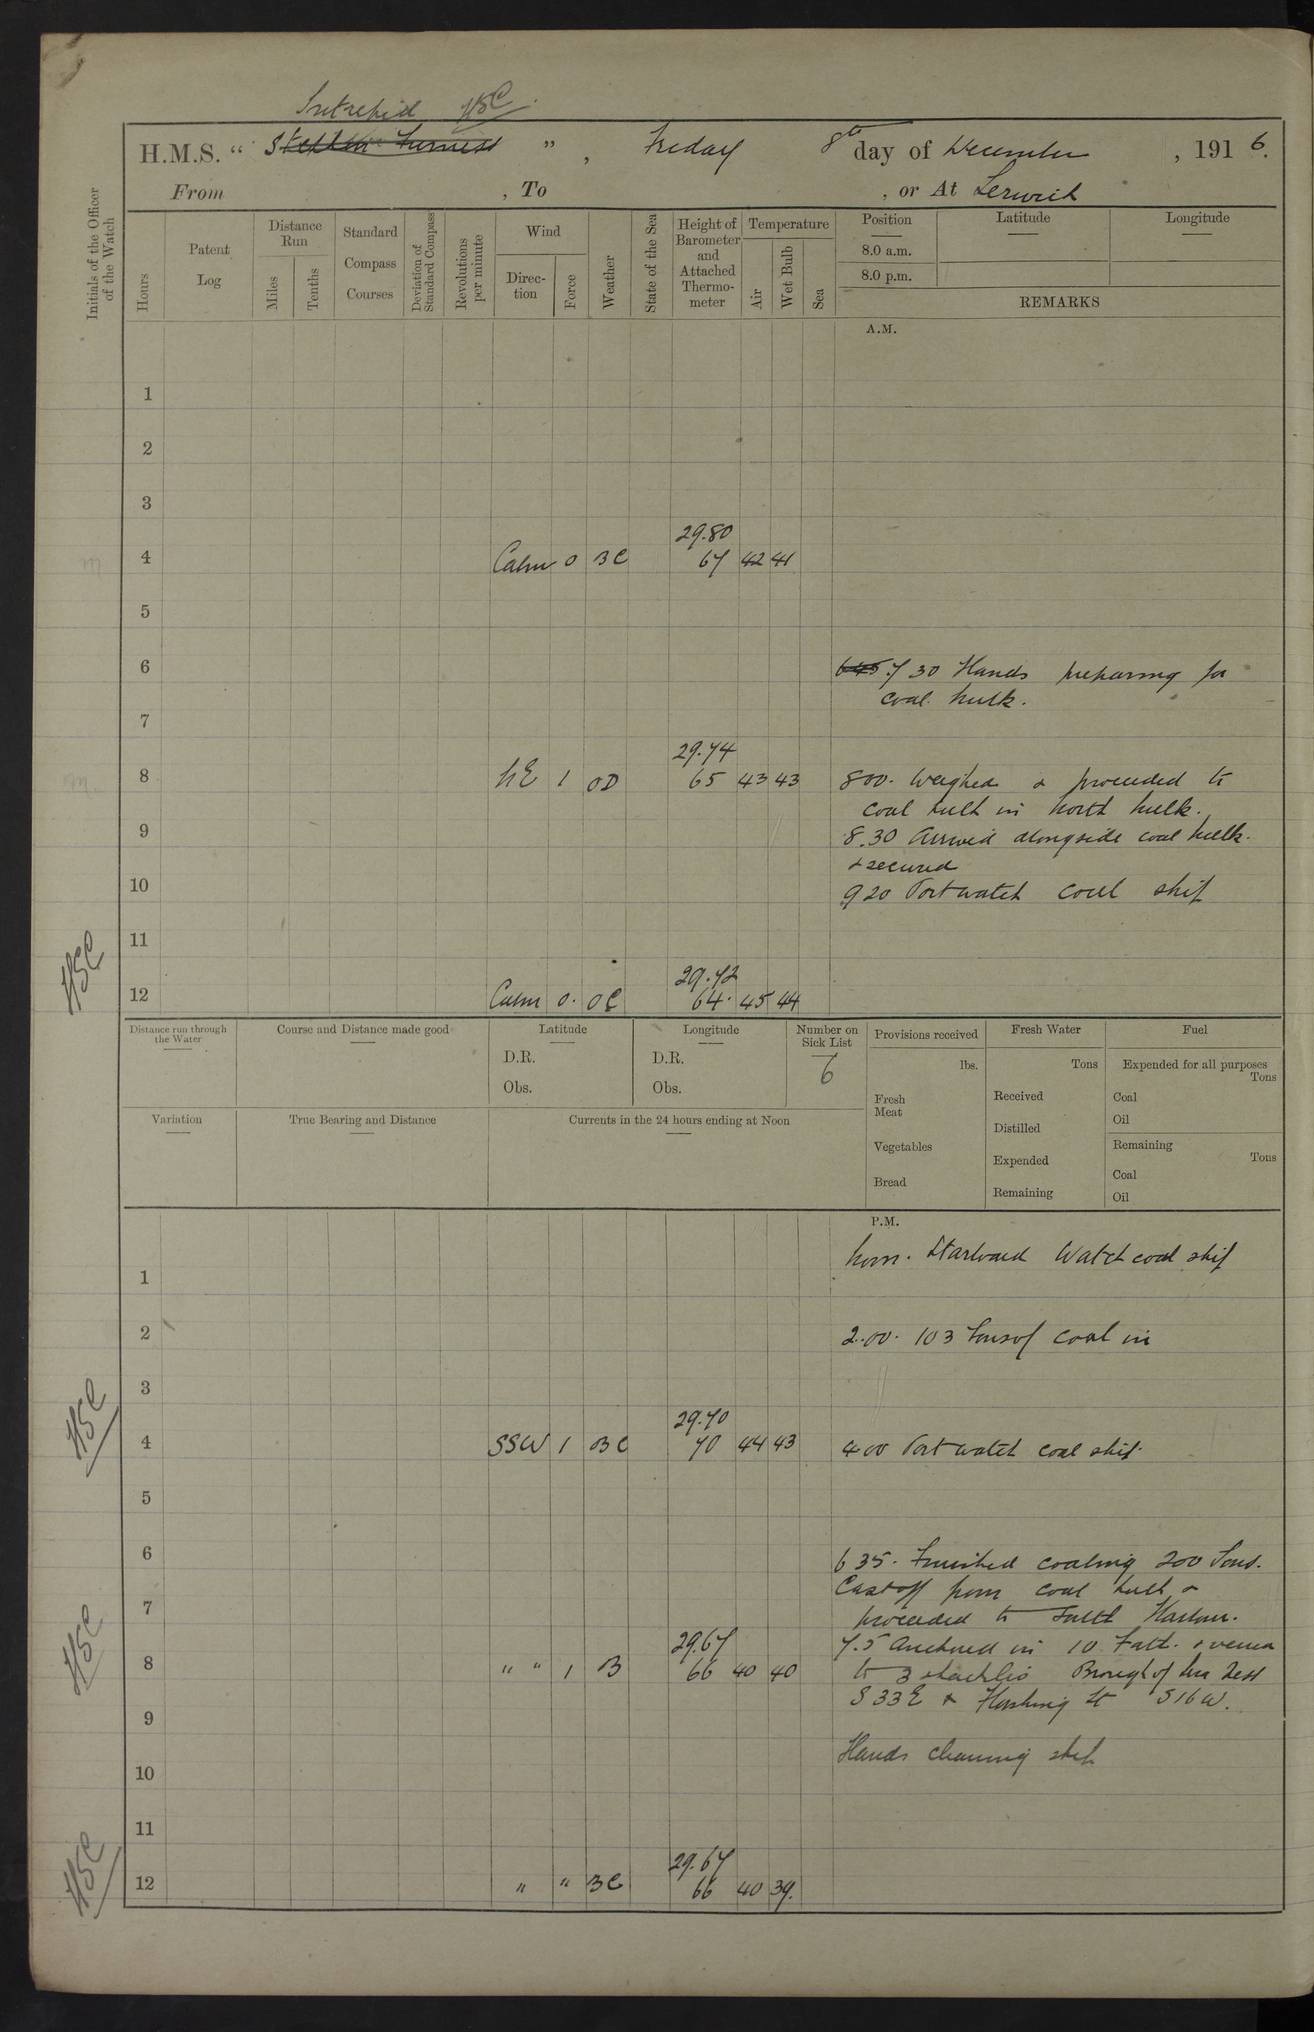 Intrepid HSC
H.M.S. " Stephen Furness ", Friday 8th day of December, 1916.
From , To , or At Lerwick
Initials of the Officer of the Watch
Hours
Patent Log
Distance Run
Miles
Tenths
Standard Compass Courses
Deviation of Standard Compass
Revolutions per minute
Wind
Direction
Force
Weather
State of the Sea
Height of Barometer and Attached Thermometer
Temperature
Air
Wet Bulb
Sea
Position Latitude Longitude
8.0 a.m.
8.0 p.m.
REMARKS
A.M.
1
2
3
29.80
4 Calm 0 BC 67 42 41
5
6 645 7 30 Hands preparing for
coal hulk.
7
29.74
8 NE 1 OD 65 43 43 800. Weighed & proceeded to
coal hulk in North hulk.
9 8.30 Arrived alongside coal hulk.
& secured
10 920 Port watch coal ship
11
29.72
HSC 12 Calm 0. OC 64. 45 44
Distance run through the Water
Course and Distance made good
Latitude
D.R.
Obs.
Longitude
D.R.
Obs.
Number on Sick List
6
Provisions received
lbs.
Fresh Meat
Vegetables
Bread
Fresh Water
Tons
Received
Distilled
Expended
Remaining
Fuel
Expended for all purposes
Tons
Coal
Oil
Remaining
Tons
Coal
Oil
Variation
True Bearing and Distance
Currents in the 24 hours ending at Noon
P.M.
Noon. Starboard Watch coal ship
1
2 2.00. 103 Tons of coal in
3
29.70
HSC 4 SSW 1 BC 70 44 43 400 Port watch coal ship.
5
6 6 35. Finished coaling 200 Tons.
Cast off from coal hulk &
7 proceeded to South Harbour.
29.67 7.5 Anchored in 10 Fath. & veered
HSC 8 " " 1 B 66 40 40 to 3 shackles
S 33 E & Flashing Lt S16W.
9
Hands cleaning ship
10
11
29.67
HSC 12 " " BC 66 40 39.